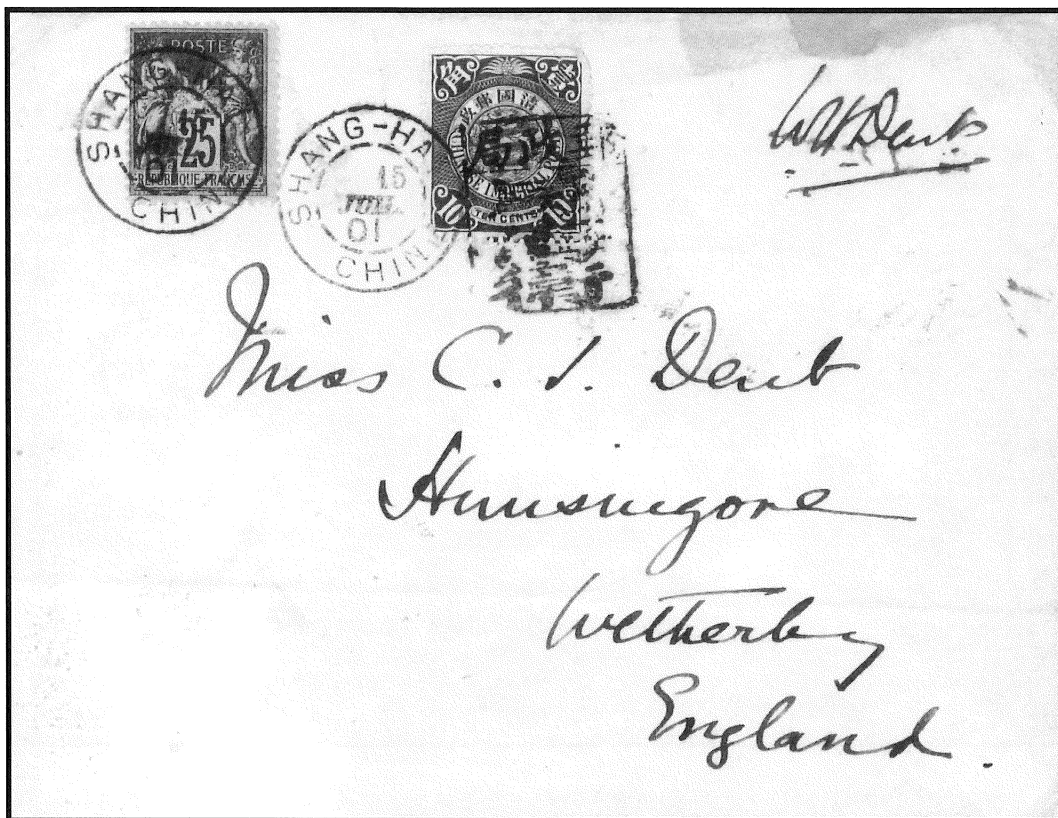 POSTE
25
RÉPUBLIQUE FRANÇAISE
SHANG-HAI
15
01
CHINE
SHANG-HAI
15
JUIL.
01
CHINE
大清國郵政
CHINESE IMPERIAL POST
10 TEN CENTS 10
W H Dent
Miss C. I. Dent
Hunsingore
Wetherby
England.